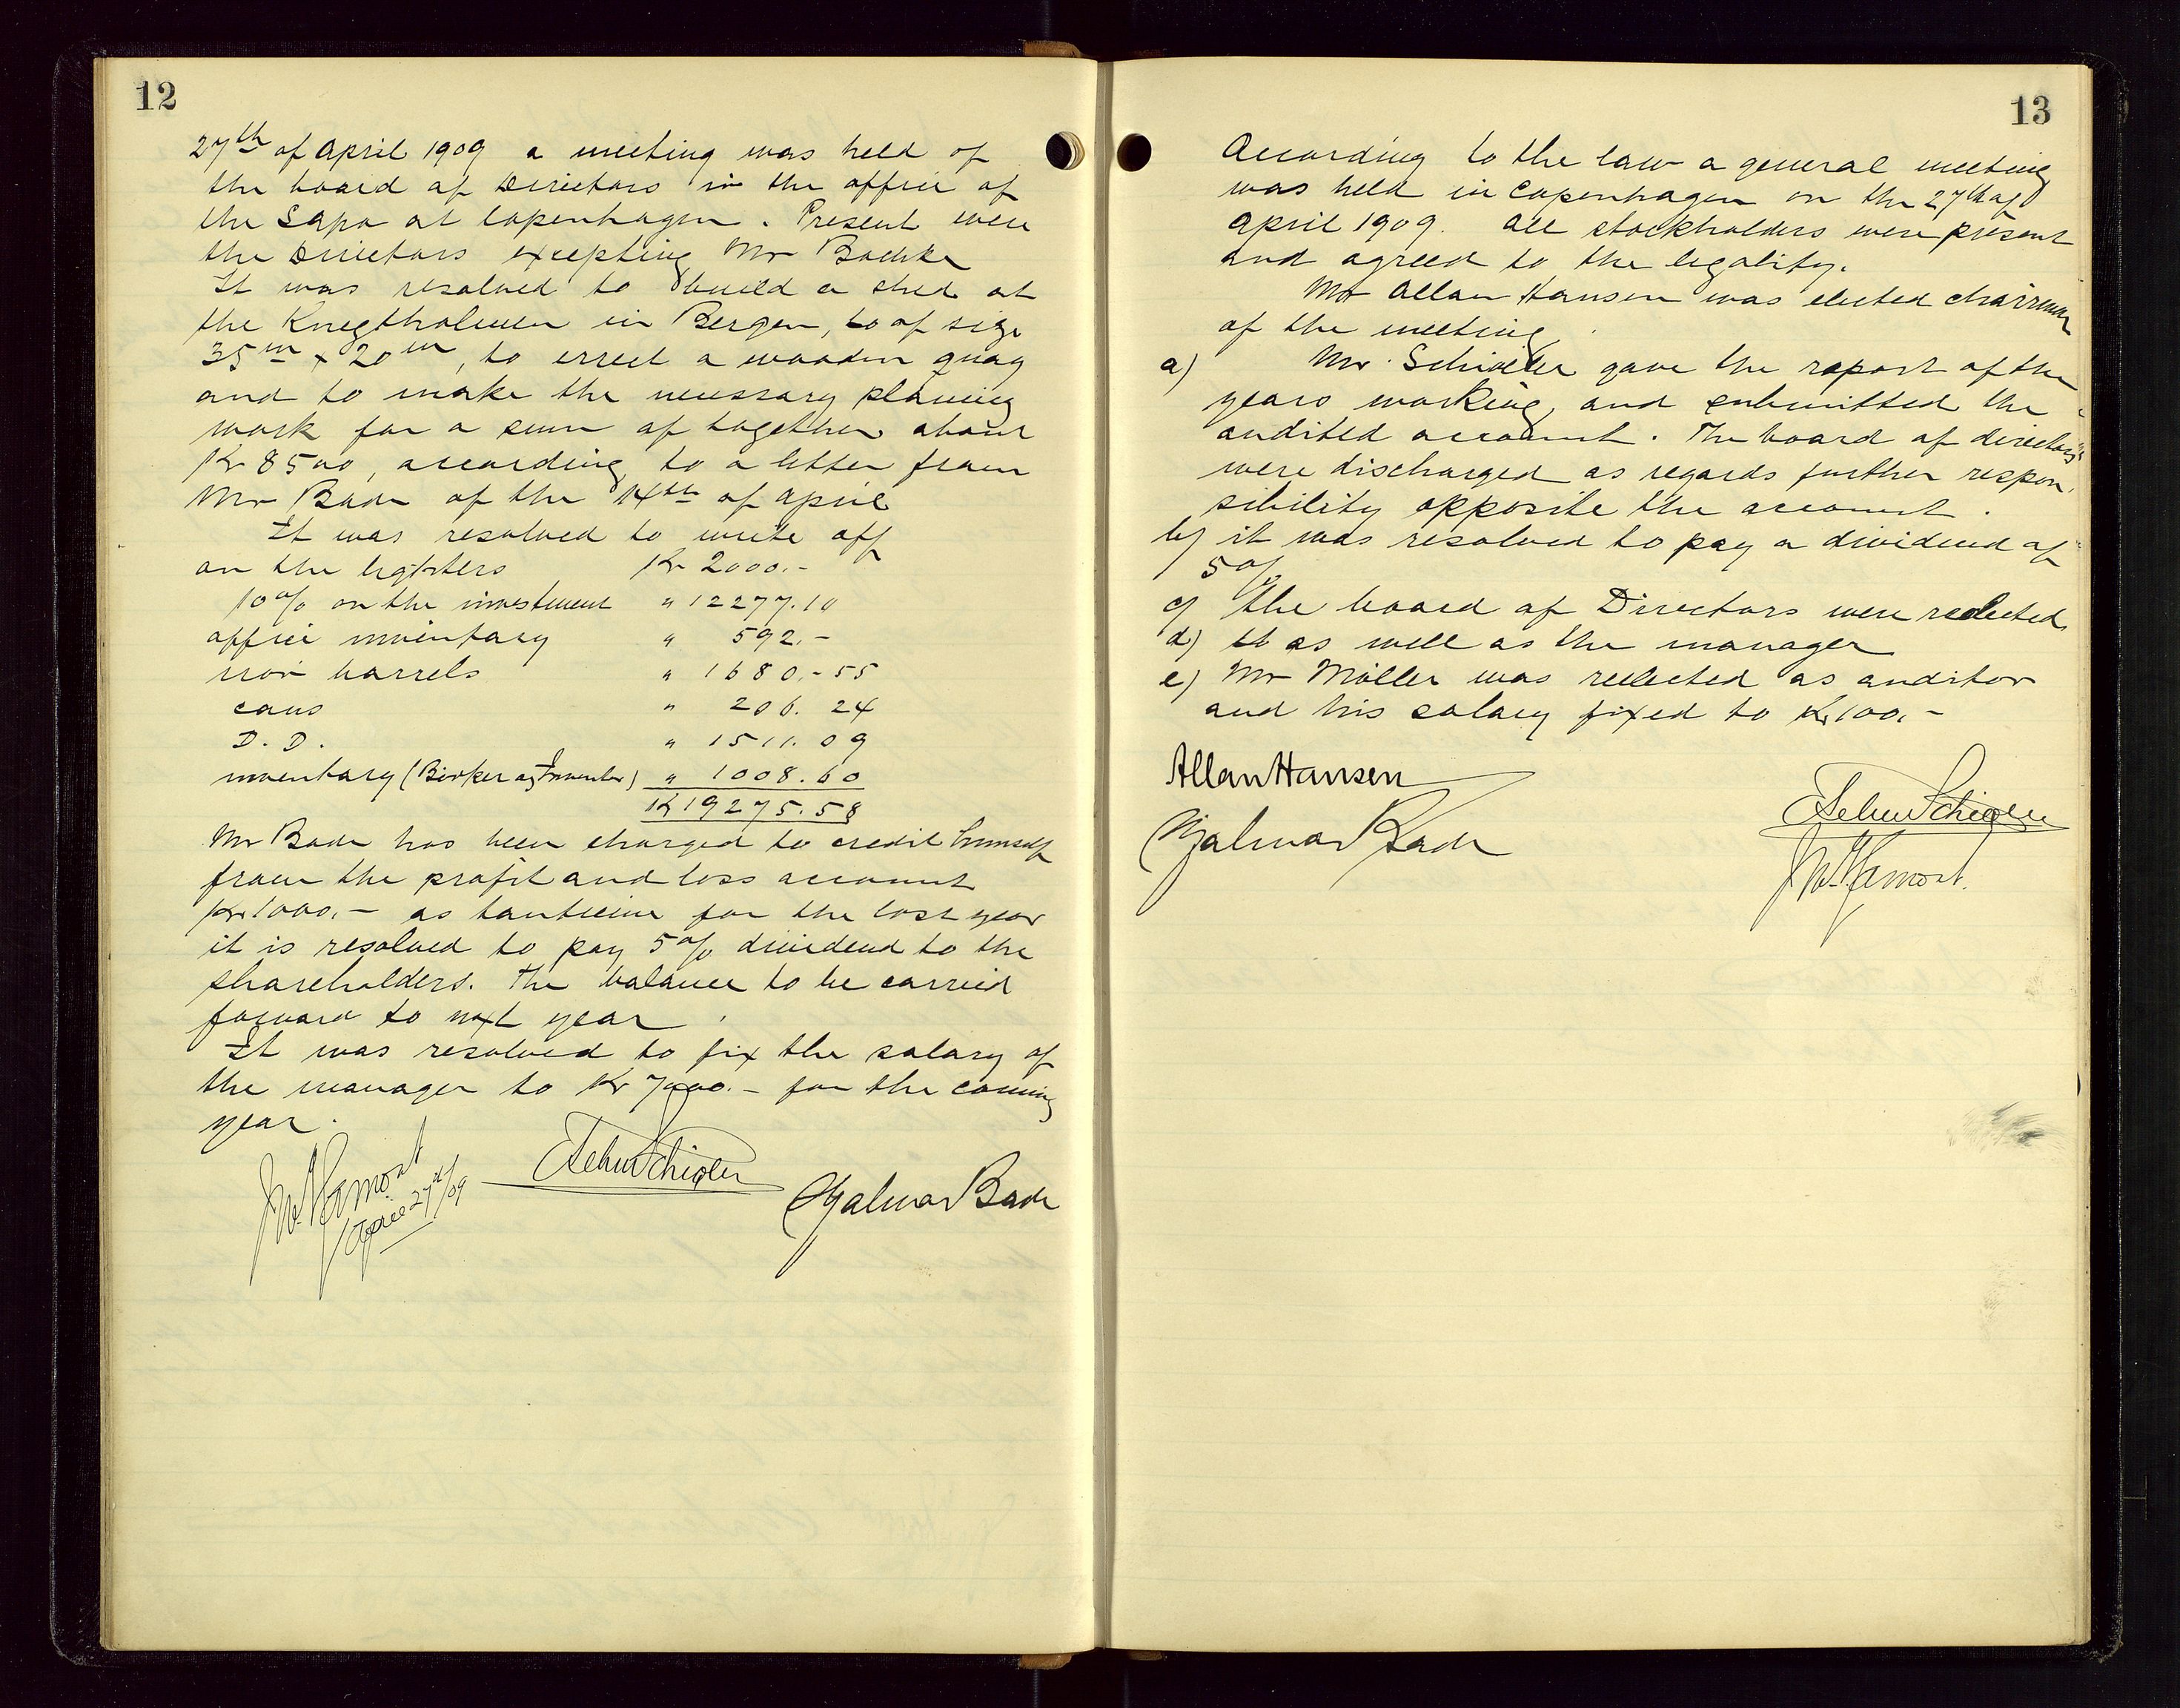 12
27th of april 1909 a meeting was held of
the board of Directors in the office of
the Sapo at Copenhagen. Present were
the Directors excepting Mr
It was resolved to build a shed at
the Knegtholmen in Bergen, to of size
35m x 20m, to errect a wooden quay
and to make the necessary planing
work for a sum of together about
Kr 8500, according to a letter from
Mr Bade of the 14th of april
It was resolved to write off
on the lighters Kr 2000.-
10% on the investment " 12277.10
office inventary " 592.-
iron barrels " 1680.-55
cans " 206. 24
D. D. " 1511. 09
inventary ( ) " 1008. 60
Kr 19275. 58
Mr Bade has been charged to credit himself
from the profit and loss account
Kr 1000.- as tantieme for the last year
it is resolved to pay 5% dividend to the
shareholders. The balance to be carried
forward to next year.
It was resolved to fix the salary of
the manager to Kr 7000.- for the coming
year.
April 27th/09
Hjalmar Bade
13
According to the law a general meeting
was held in Copenhagen on the 27th of
april 1909. All stockholders were present
and agreed to the legality.
Mr Allan Hansen was elected chairman
of the meeting.
a) Mr Schiøler gave the raport of the
years working, and submitted the
audited account. The board of directors
were discharged as regards further respon
sibility opposite the account.
b) it was resolved to pay a dividend of
5%
c) the board of Directors were reelected
d) as well as the manager
e) Mr Möller was reelected as auditor
and his salary fixed to Kr 100.-
Allan Hansen
Hjalmar Bade